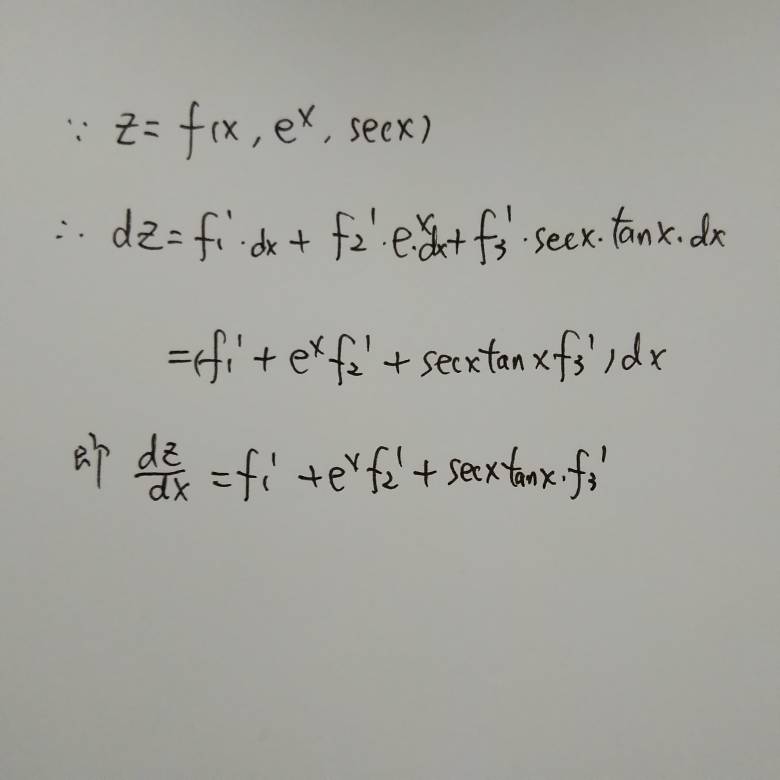 ∵ z = f(x, eˣ, secx)
∴ dz = f₁′·dx + f₂′·eˣ·dx + f₃′·secx·tanx·dx
=(f₁′ + eˣf₂′ + secxtanxf₃′)dx
即 dz/dx = f₁′ + eˣf₂′ + secxtanx·f₃′